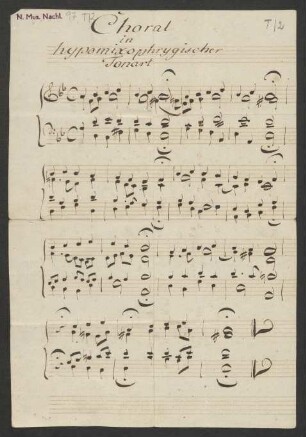 N. Mus. Nachl. 97 T/2
T/2
Choral
in
hypomixophrygischer
Tonart